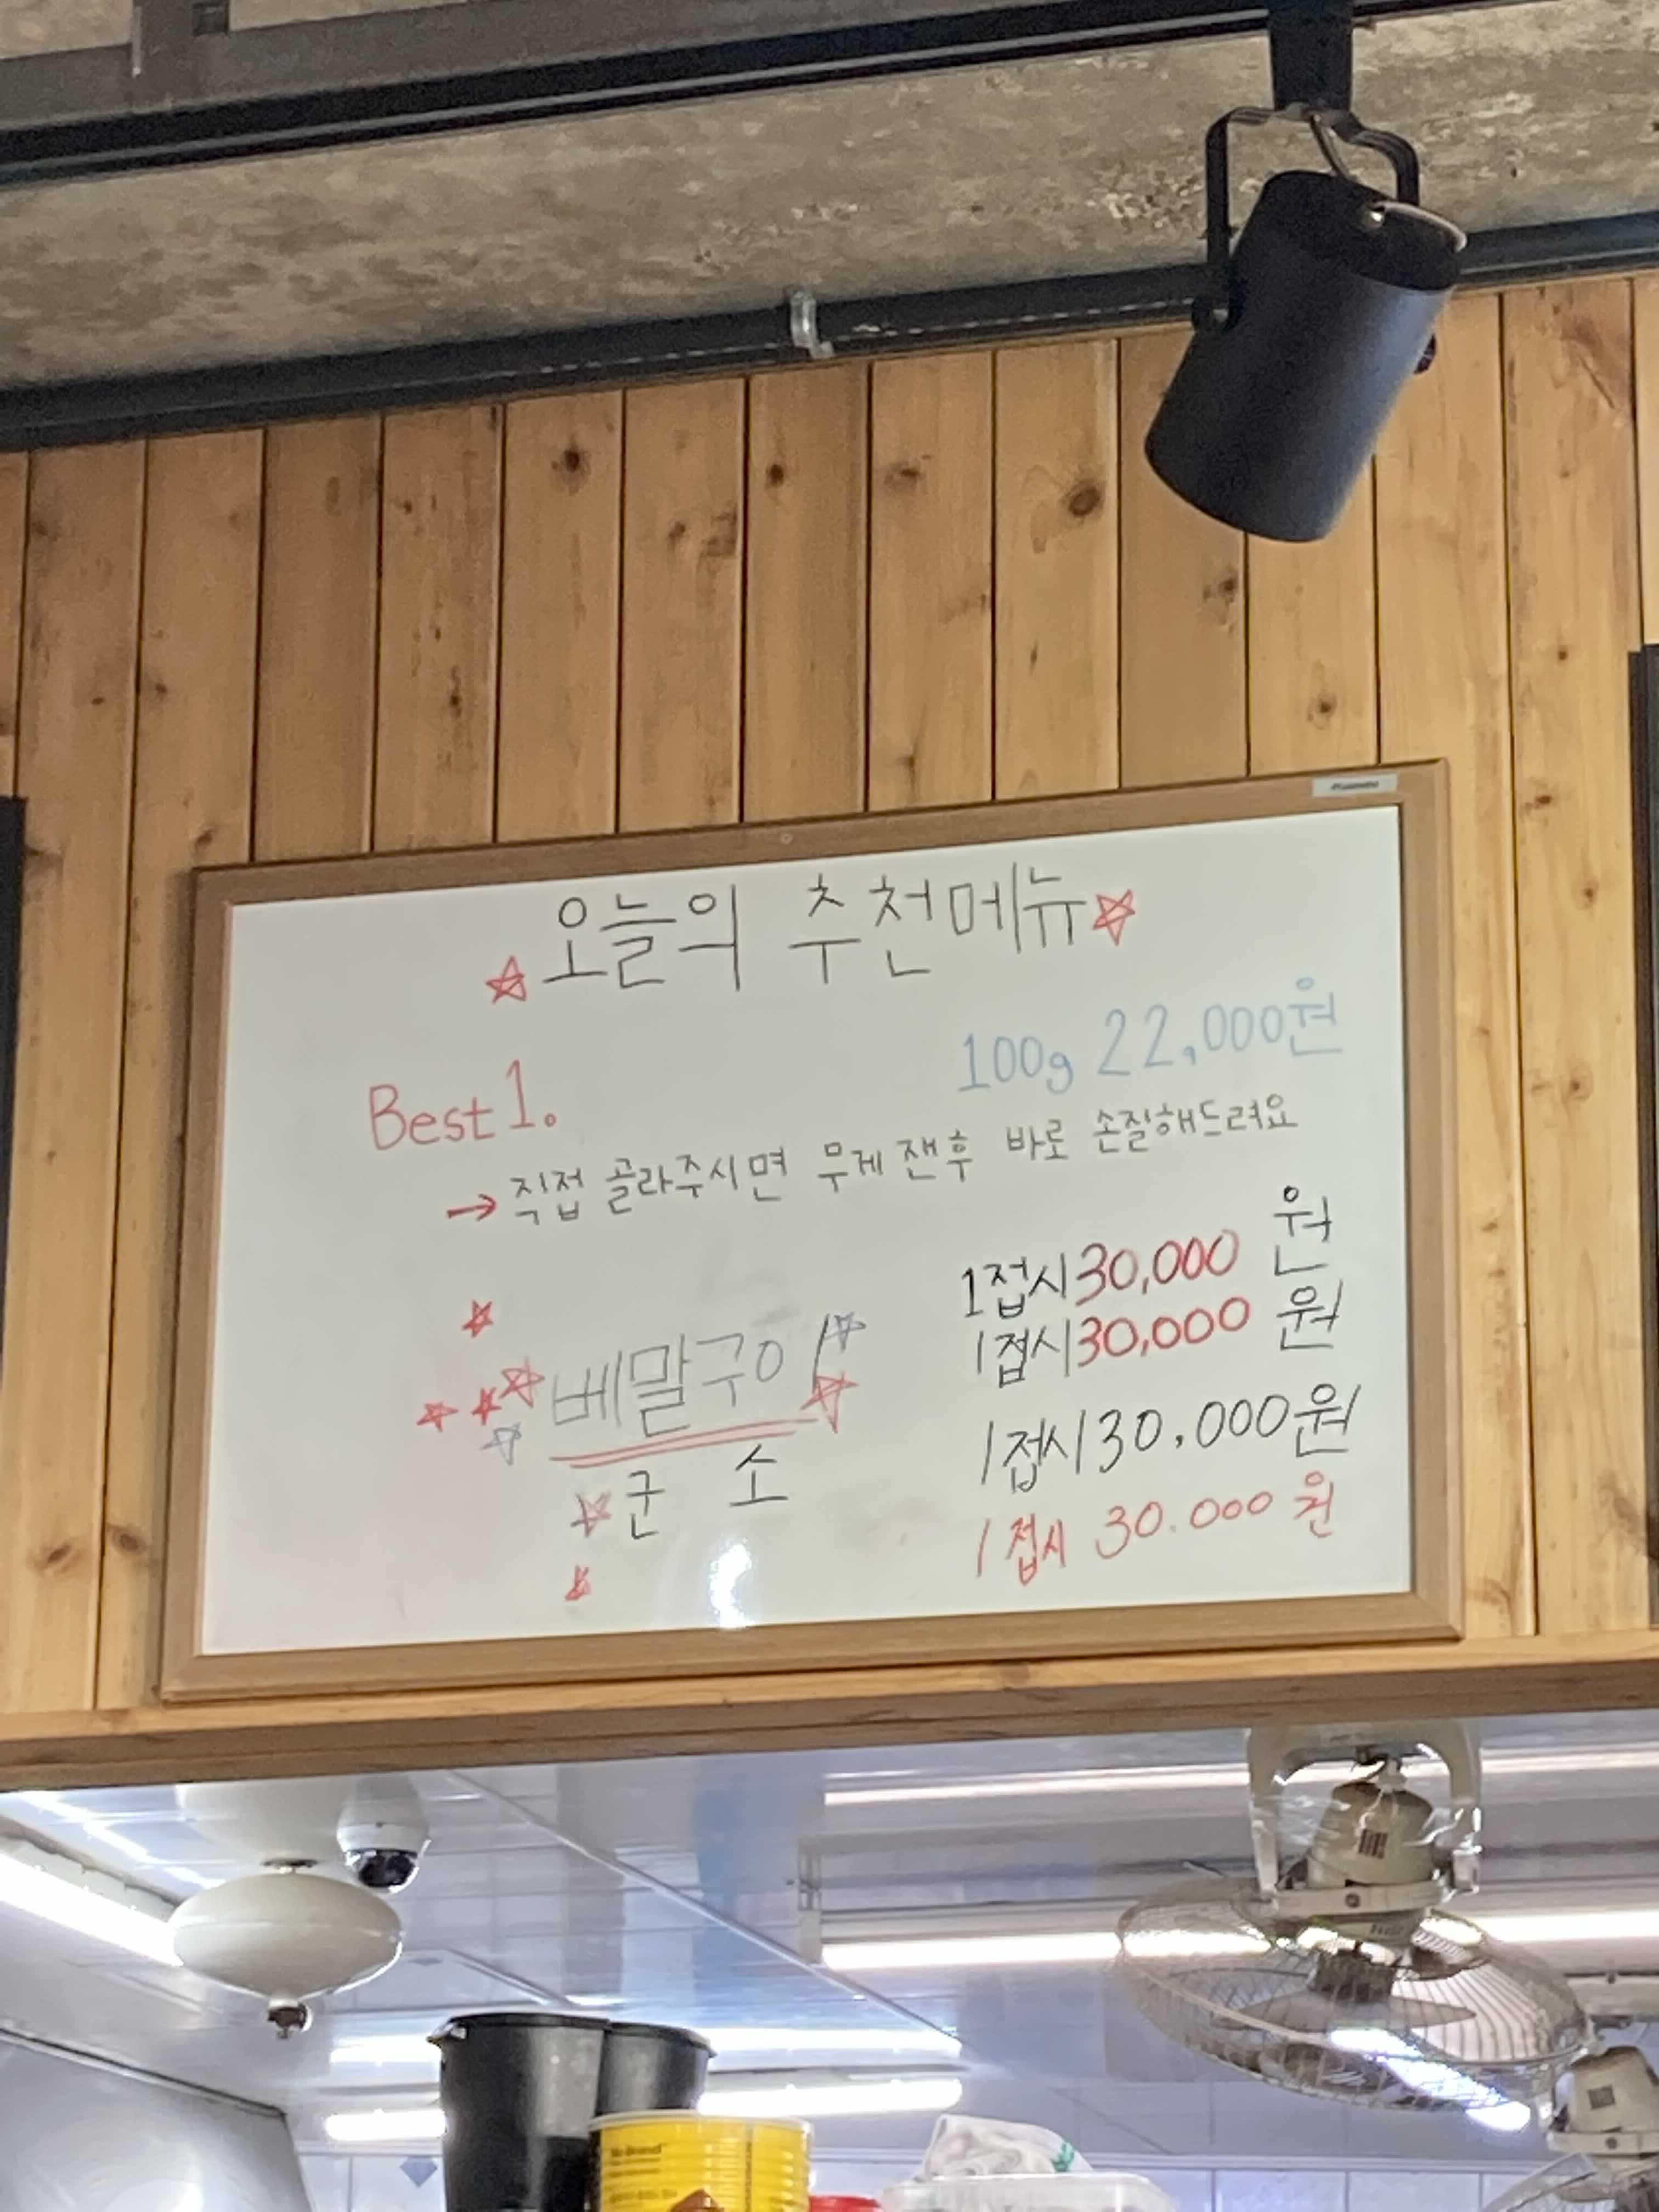 오늘의 추천메뉴
100g 22,000원
Best 1.
→ 직접 골라주시면 무게 잰후 바로 손질해드려요
1접시 30,000 원
1접시 30,000 원
베말구이
1접시 30,000원
군 소
1접시 30.000 원